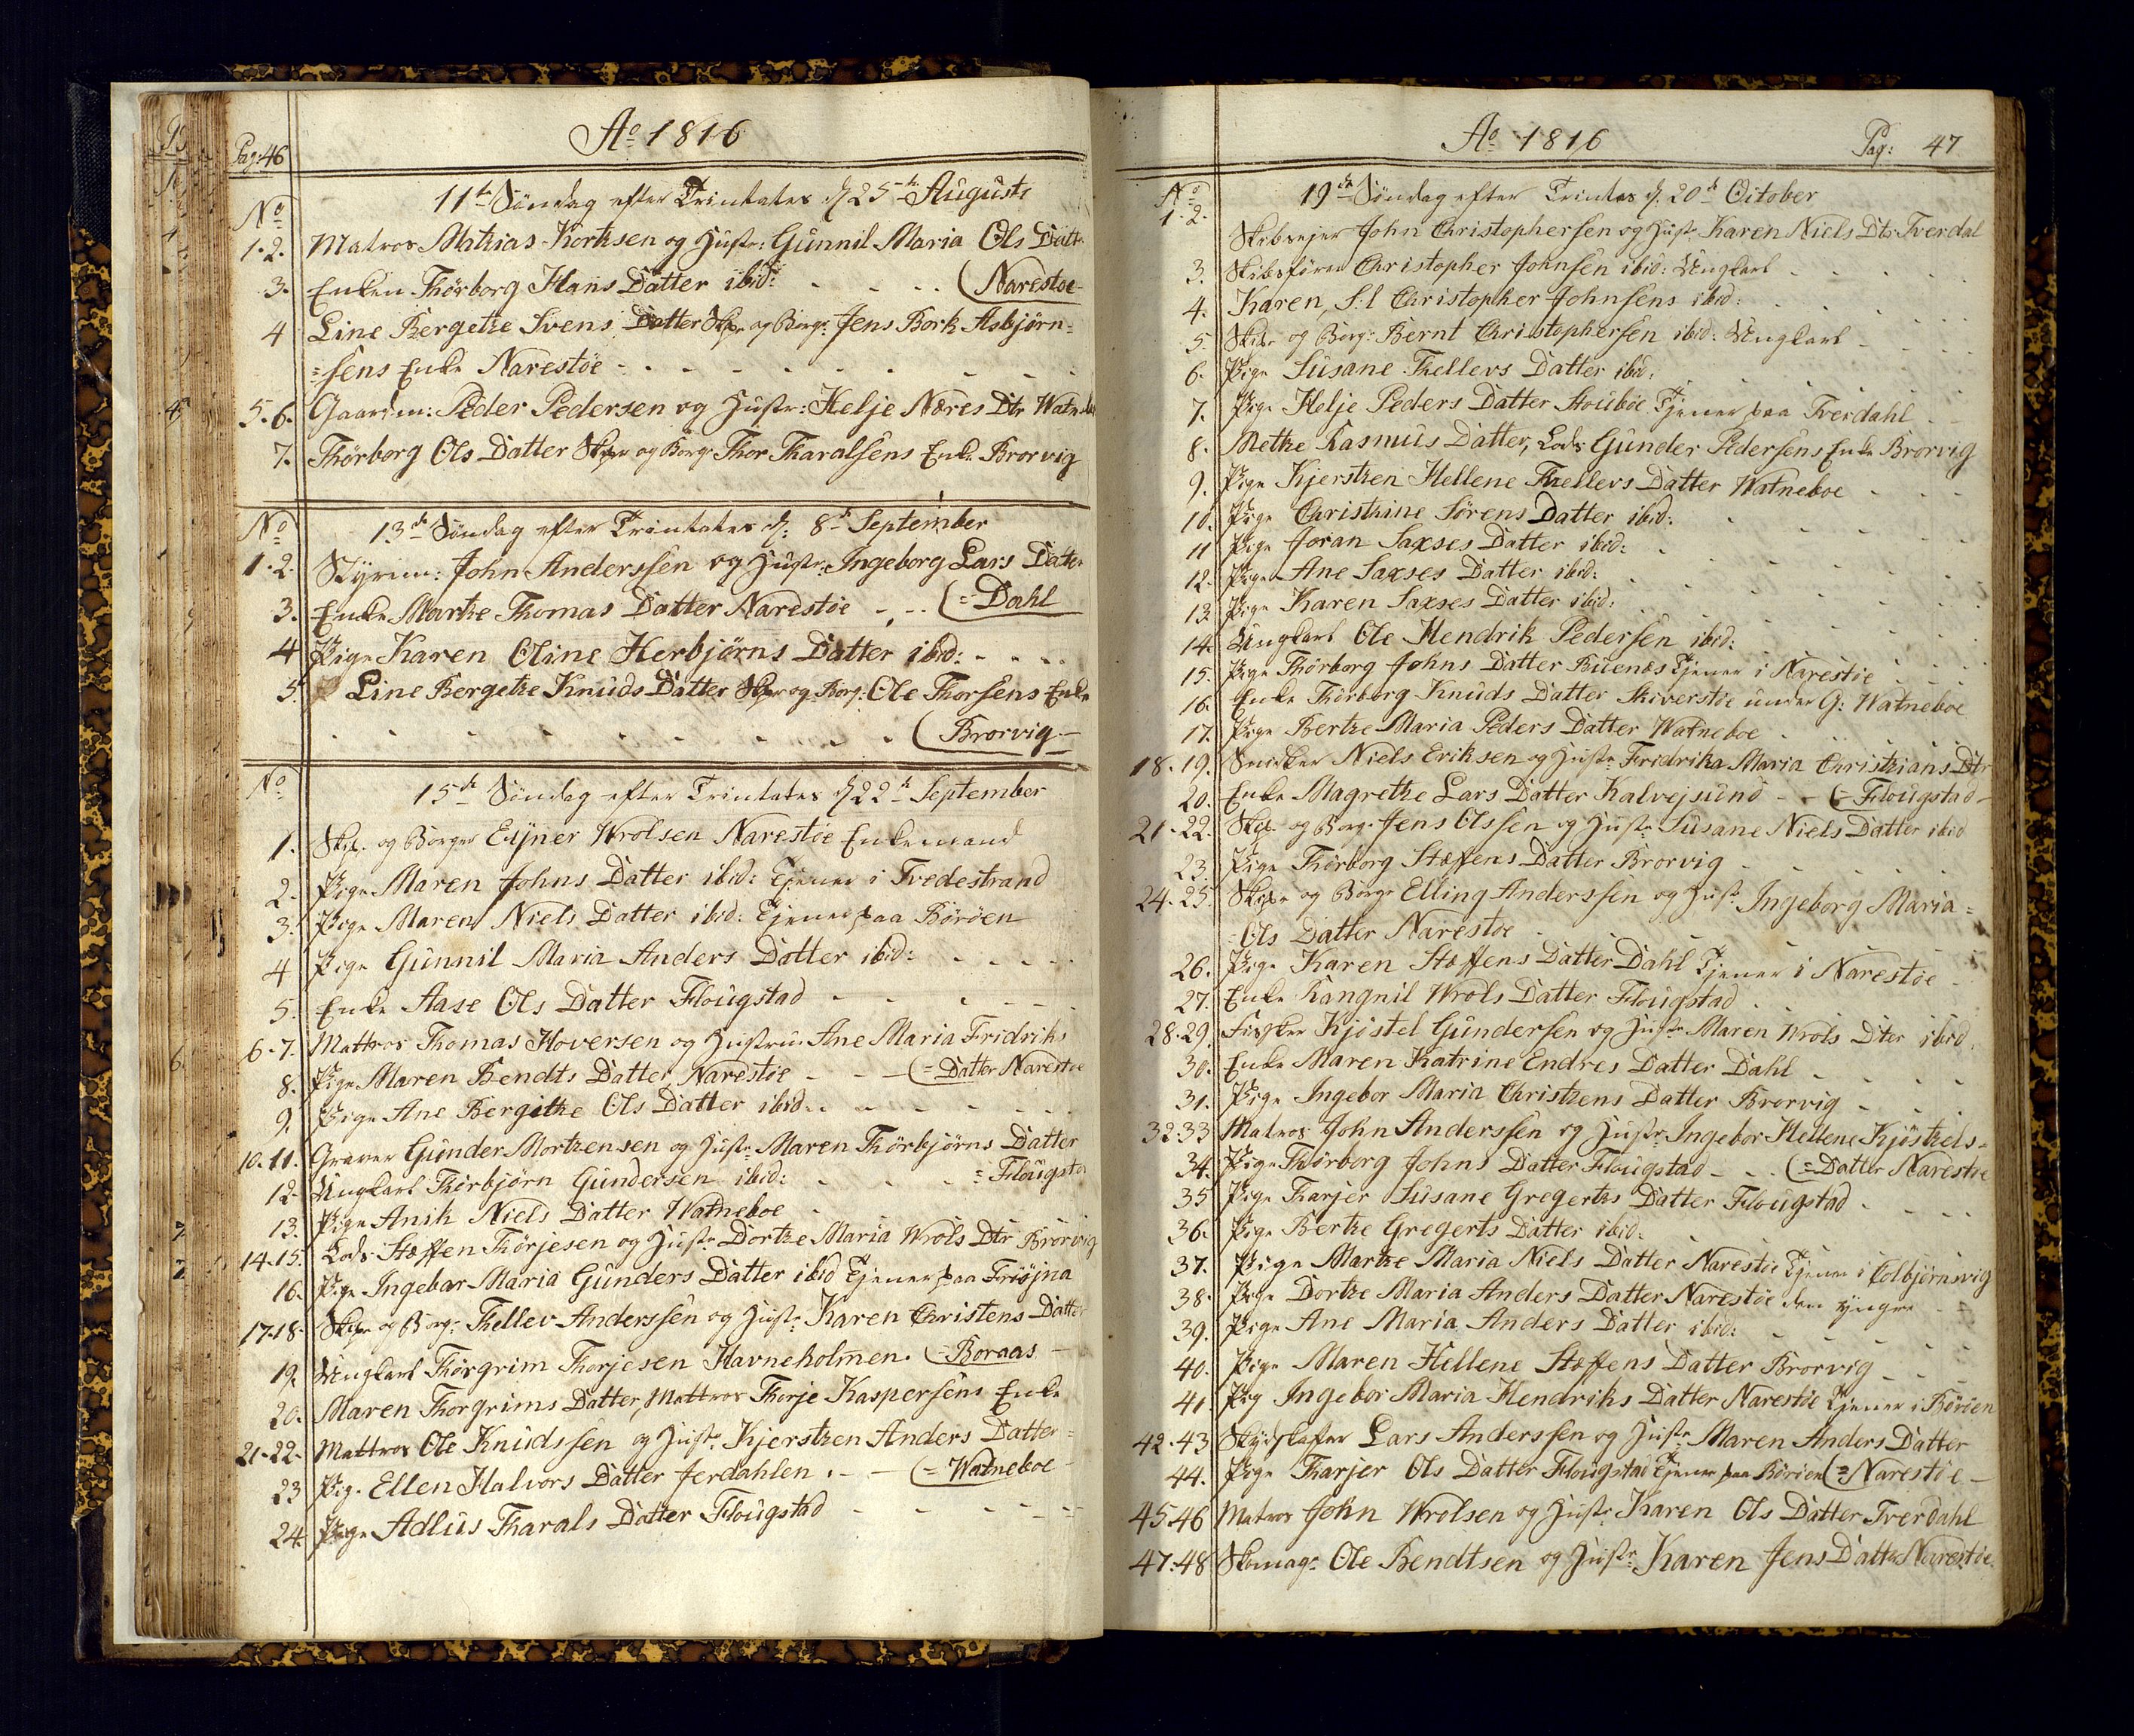 Pag: 46
Ao 1816
No
11te Søndag efter Trinitates d. 25de Augusti
1.2. Matros Mathias Korthsen og Hustr: Gunnil Maria Ols Datt:
3. Enken Thørborg Hans Datter ibid: (Narestøe
4 Line Bergethe Svens Datter Skipr og Borgr: Jens Bork Asbjørn=
=sens Enke Narestøe
5.6. Gaardm: Peder Pedersen og Hustr: Helje Næres Dtr Watneboe
7. Thørborg Ols Datter Skipr og Borgr Thor Tharalsens Enke Brorvig
No
13de Søndag efter Trinitates d: 8de September
1.2. Styrm: John Anderssen og Hustr: Ingeborg Lars Datter
3. Enke Marthe Thomas Datter Narestøe (=Dahl
4 Pige Karen Oline Herbjørns Datter ibid:
5. Line Bergethe Knuds Datter Skipr og Borg: Ole Thorsens Enke
(Brorvig
No
15de Søndag efter Trinitates d. 22de September
1. Skip. og Borger Eijner Wrolsen Narestøe Enkemand
2. Pige Maren Johns Datter ibid: Tjener i Tvedestrand
3. Pige Maren Niels Datter ibid: Tjener paa Børøen
4 Pige Gunnil Maria Anders Datter ibid:
5. Enke Aase Ols Datter Flougstad
6.7. Mattros Thomas Hoversen og Hustrue Ane Maria Fridriks
8. Pige Maren Bendts Datter Narestøe (=Datter Narestøe
9. Pige Ane Bergithe Ols Datter ibid:
10.11. Graver Gunder Mortzensen og Hustr: Maren Thörbjørns Datter
12. Ungkarl Thörbjørn Gundersen ibid: =Flougstad
13. Pige Anik Niels Datter Watneboe
14.15. Lods Stæffen Thörjesen og Hustr Dorthe Maria Wrols Dtr Brorvig
16. Pige Ingebor Maria Gunders Datter ibid Tjener paa Friøjna
17.18. Skipr og Borg: Thellev Anderssen og Hustr: Karen Christens Datter
19. Ungkarl Thorgrim Thorjesen Havneholmen. (=Boraas
20. Maren Thorgrims Datter, Mattros Thorje Kaspersens Enke
21-22. Mattros Ole Knudssen og Hustr: Kjersthen Anders Datter=
23 Pig. Ellen Halvors Datter Jerdahlen (=Watneboe
24. Pige Adlus Tharals Datter Flougstad
Ao 1816
Pag: 47
No
19de Søndag efter Trinitas d. 20de October
1.2. Skibsejer John Christophersen og Hustr Karen Niels Dtr Tverdal
3. Skibsfører Christopher Johnsen ibid: Ungkarl
4. Karen, S:l Christopher Johnsens ibid:
5. Skipr og Borgr Bernt Christophersen ibid: Ungkarl
6. Pige Susane Thellevs Datter ibid:
7. Pige Helje Peders Datter Stouboe Tjener paa Tverdahl
8. Methe Rasmus Datter, Lods Gunder Pedersens Enke Brorvig
9. Pige Kjersthen Hellene Thellevs Datter Watneboe
10. Pige Christhine Sørens Datter ibid:
11 Pige Joran Saxses Datter ibid:
12. Pige Ane Saxses Datter ibid:
13. Pige Karen Saxses Datter ibid:
14. Ungkarl Ole Hendrik Pedersen ibid:
15. Pige Thörborg Johns Datter Buenes Tjener i Narestøe
16. Enke Thörborg Knuds Datter Skiverstøe under G: Watneboe
17. Pige Berthe Maria Peders Datter Watneboe
18.19. Snidker Niels Eriksen og Hustr Fridrika Maria Christhians Dtr
20. Enke Magrethe Lars Datter Kalvejsund (=Flougstad
21.22. Skip. og Borg. Jens Olssen og Hustr Susane Niels Datter ibid
23. Pige Thörborg Stæffens Datter Brorvig
24.25. Skipr og Borgr Elling Anderssen og Hustr Ingeborg Maria=
=Ols Datter Narestøe
26. Pige Karen Stæffens Datter Dahl Tjener i Narestøe
27. Enke Rangnil Wrols Datter Flougstad
28.29. Fisker Kjøstel Gundersen og Hustr Maren Wrols Dter ibid
30. Enke Maren Katrine Endres Datter Dahl
31. Pige Ingebor Maria Christhens Datter Brorvig
32.33 Matros John Anderssen og Hustr Ingebor Hellene Kjösthels=
34. Pige Thörborg Johns Datter Flougstad (=Datter Narestøe
35 Pige Tharjer Susane Gregerths Datter Flougstad
36. Pige Berthe Gregerts Datter ibid:
37. Pige Marthe Maria Niels Datter Narestøe Tjener i Colbjørnsvig
38. Pige Dorthe Maria Anders Datter Narestøe den yngre
39. Pige Ane Maria Anders Datter ibid:
40. Pige Maren Hellene Stæffens Datter Brorvig
41 Pig Ingebor Maria Hendriks Datter Narestøe Tjener i Børøen
42.43 Skydskafer Lars Anderssen og Hustr Maren Anders Datter
44. Pige Tharjer Ols Datter Flougstad Tjener paa Børøen (=Narestøe
45.46 Matros John Wrolsen og Hustr Karen Ols Datter Tverdahl
47.48 Skomagr Ole Bendtsen og Hustr: Karen Jens Datter Narestøe